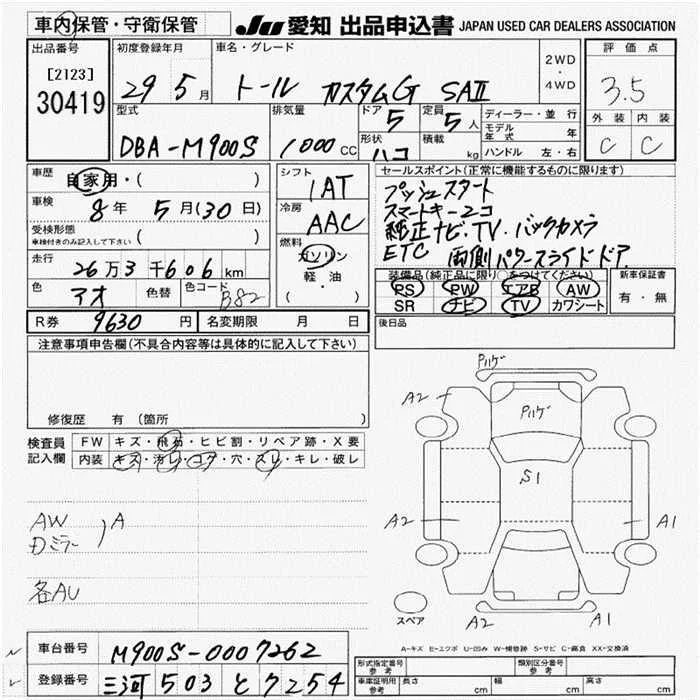 車内保管・守衛保管
JU 愛知 出品申込書 JAPAN USED CAR DEALERS ASSOCIATION
出品番号
[2123]
30419
初度登録年月
29 5月
車名・グレード
トール カスタムG SAⅡ
2WD
・
4WD
評価点
3.5
外装 内装
C C
型式
DBA-M900S
排気量
1000 CC
ドア
5
定員
5人
形状
ハコ
積載
kg
ディーラー・並行
モデル年式 年
ハンドル 左・右
車歴
自家用・( )
車検
8年 5月(30日)
受検形態
車検付きのみ記入して下さい ( )
走行
26万3千606km
色
アオ
色替
色コード
B82
シフト
IAT
冷房
AAC
燃料
ガソリン
・
軽・油
( )
セールスポイント(正常に機能するものに限ります)
プッシュスタート
スマートキー2コ
純正ナビ、TV、バックカメラ
ETC 両側パワースライドドア
装備品(純正品に限り○をつけてください)
PS PW エアB AW
SR ナビ TV カワシート
新車保証書
有・無
R券 9630円
名変期限 月 日
後日品
注意事項申告欄(不具合内容等は具体的に記入して下さい)
修復歴 有(箇所 )
検査員
記入欄
FW キズ・飛石・ヒビ割・リペア跡・X要
内装 キズ・汚レ・コゲ・穴・スレ・キレ・破レ
AW
Dミラー
) A
各AU
Pハゲ
A2
Pハゲ
S1
A2
A1
A2
A1
スペア
A-キズ E-エクボ U-凹み W-補修跡 S-サビ C-腐食 XX-交換済
車台番号
M900S-0007262
登録番号
三河 503 と 7254
形式指定番号
参考
類別区分番号
参考
車庫証明用
参考
長さ cm
幅 cm
高さ cm